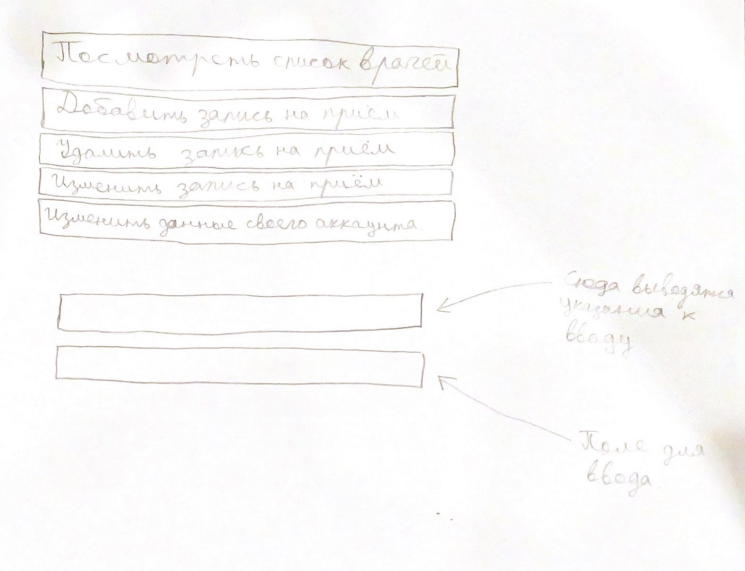 Посмотреть список врачей
Добавить запись на приём
Удалить запись на приём
Изменить запись на приём
Изменить данные своего аккаунта
Сюда выводятся
указания к
вводу
Поле для
ввода